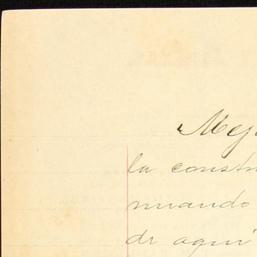 Mej
la constr
nuando
de aquí